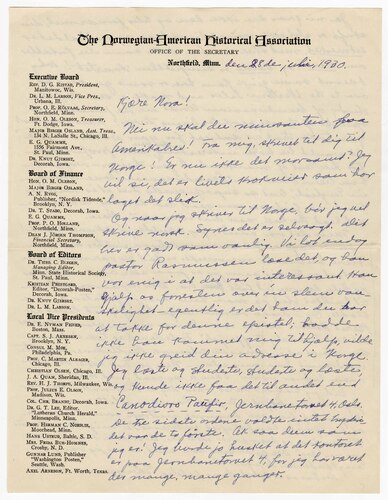 The Norwegian-American Historical Association
OFFICE OF THE SECRETARY
Northfield, Minn. den 28de juli, 1930.
Executive Board
REV. D. G. RISTAD, President,
Manitowoc, Wis.
DR. L. M. LARSON, Vice Pres.,
Urbana, Ill.
PROF. O. E. RÖLVAAG, Secretary,
Northfield, Minn.
HON. O. M. OLESON, Treasurer,
Ft. Dodge, Iowa.
MAJOR BIRGER OSLAND, Asst. Treas.,
134 N. LaSalle St., Chicago, Ill.
E. G. QUAMME,
Fairmount Ave.,
St. Paul, Minn.
DR. KNUT GJERSET,
Decorah, Iowa.
Board of Finance
HON. O. M. OLESON,
MAJOR BIRGER OSLAND,
A. N. RYGG,
Publisher, "Nordisk Tidende,"
Brooklyn, N. Y.
DR. T. STABO, Decorah, Iowa.
E. G. QUAMME,
PROF. P. O. HOLLAND,
DEAN J. JÖRGEN THOMPSON,
Financial Secretary,
Northfield, Minn.
Board of Editors
DR. THEO. C. BLEGEN,
Managing Editor,
Minn. State Historical Society,
St. Paul, Minn.
KRISTIAN PRESTGARD,
Editor, "Decorah-Posten,"
Decorah, Iowa.
DR. KNUT GJERSET,
DR. L. M. LARSON.
Local Vice Presidents
DR. E. NYMAN FIGVED,
Boston, Mass.
CAPT. S. J. ARNESEN,
Brooklyn, N. Y.
CONSUL M. MOE,
Philadelphia, Pa.
PROF. C. MARTIN ALSAGER,
Chicago, Ill.
CHRISTIAN OLSEN, Chicago, Ill.
J. A. QUAM, Sheridan, Ill.
REV. H. J. THORPE, Milwaukee, Wis.
PROF. JULIUS E. OLSON,
Madison, Wis.
COL. CHR. BRANDT, Decorah, Iowa.
DR. G. T. LEE, Editor,
"Lutheran Church Herald,"
Minneapolis, Minn.
PROF. HERMAN C. NORDLIE,
Moorhead, Minn.
HANS USTRUD, Baltic, S. D.
MRS. FRIDA BUE-HOMNES,
Crosby, N. D.
GUNNAR LUND, Publisher
"Washington Posten,"
Seattle, Wash.
AXEL ARNESON, Ft. Worth, Texas.
Kjære Nora!
Nei nu skal du min
Amerikabrev! Fra mig, skrevet til dig til
Norge! Er nu ikke det morsomt? Jeg
vil si, det er livets krokveier som har
laget det slik.
Og naar jeg skriver til Norge, bør jeg vel
skrive norsk. Synes det er selvsagt. Det
her er nadt som vanlig. Vi lot endog
pastor Rasmussen læse det, og han
var enig i at det var interessant. Han
hjalp os forresten over in slem van-
skelighet egentlig er det ham du har
at takke for denne epistel, hadde
ikke han kommet mig til hjælp, vilde
jeg ikke greid din adresse i Norge
Jeg læste og studerte, studerte og læste,
og kunde ikke faa det til andet end
Canadian Pacific, Jernbanetorvet 4, Oslo.
De sidste ordene voldte
det var de to første. At saa dum som
jeg er! Jeg burde jo husket at det kontoret
er paa Jernbanetorvet 4, for jeg har været
der mange, mange ganger.